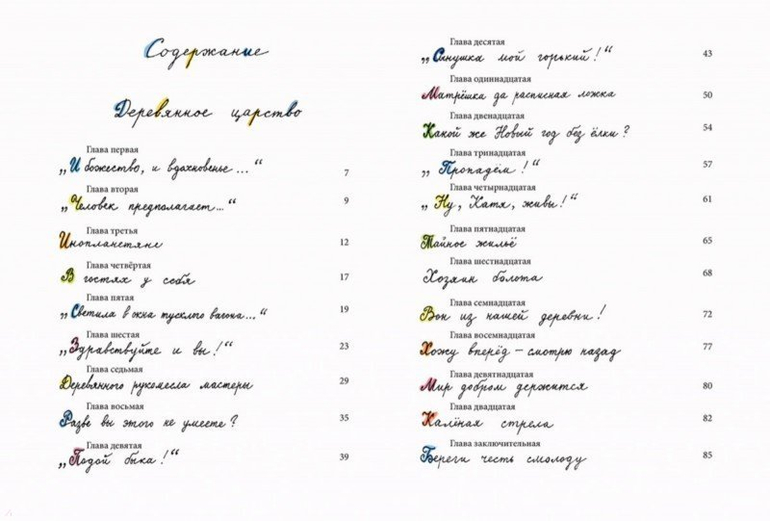 Содержание
Деревянное царство
Глава первая
„И божество, и вдохновенье...“ 7
Глава вторая
„Человек предполагает...“ 9
Глава третья
Инопланетяне 12
Глава четвёртая
В гостях у себя 17
Глава пятая
„Светила в окна тусклого вагона...“ 19
Глава шестая
„Здравствуйте и вы!“ 23
Глава седьмая
Деревянного рукомесла мастеры 29
Глава восьмая
Разве вы этого не умеете? 35
Глава девятая
„Подой быка!“ 39
Глава десятая
„Синушка мой горький!“ 43
Глава одиннадцатая
Матрёшка да расписная ложка 50
Глава двенадцатая
Какой же Новый год без ёлки? 54
Глава тринадцатая
„Пропадём!“ 57
Глава четырнадцатая
„Ну, Катя, живы!“ 61
Глава пятнадцатая
Тайное жильё 65
Глава шестнадцатая
Хозяин болота 68
Глава семнадцатая
Вон из нашей деревни! 72
Глава восемнадцатая
Хожу вперёд – смотрю назад 77
Глава девятнадцатая
Мир добром держится 80
Глава двадцатая
Калёная стрела 82
Глава заключительная
Береги честь смолоду 85